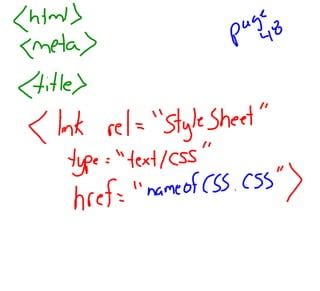 <html>
page 48
<meta>
<title>
<link rel="StyleSheet"
type="text/CSS"
href="nameofCSS.CSS">